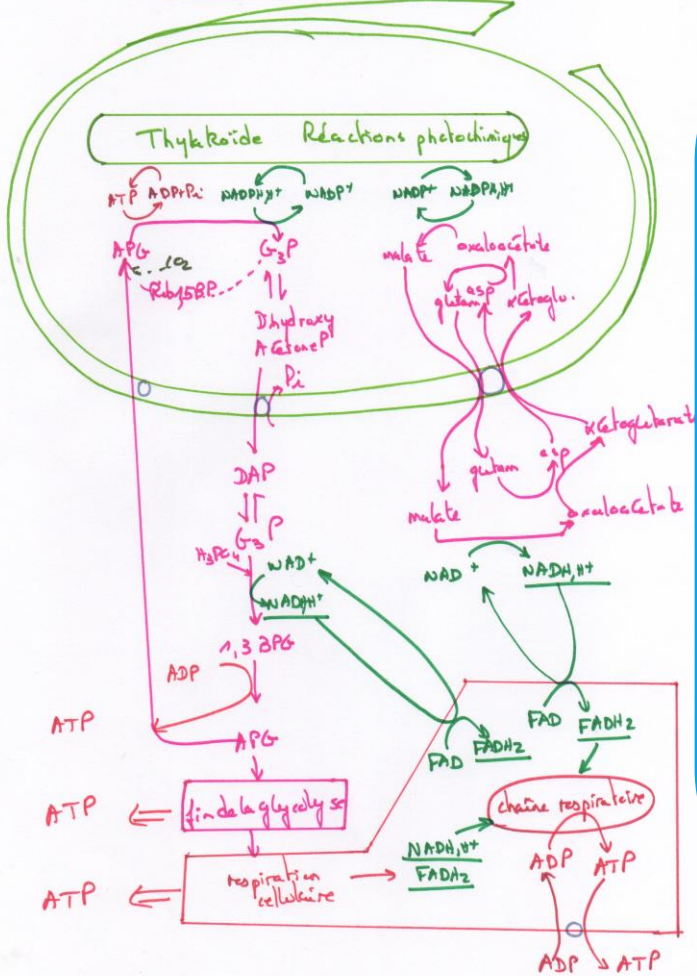 Thylakoïde Réactions photochimiques
ATP ADP+Pi NADPH,H+ NADP+ NADP+ NADPH,H+
APG G3P malate oxaloacétate
Rub1,5BP glutam asp αKetoglu.
Dhydroxy
AcétoneP
Pi
DAP
αKetoglutarat
glutam asp
malate oxaloacétate
G3P
H3PO4
NAD+
NADHH+
NAD+ NADH,H+
1,3 BPG
ADP
ATP
APG
FAD FADH2
FAD FADH2
ATP
fin de la glycolyse
chaîne respiratoire
ATP
respiration
cellulaire
NADH,H+
FADH2
ADP ATP
ADP ATP